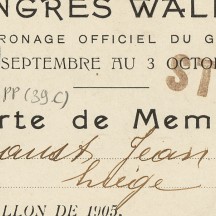 NGRÈS WALL
RONAGE OFFICIEL DU G
SEPTEMBRE AU 3 OCTO
ST
PP (39.C)
rte de Mem
aust Jean
Liége
LLON DE 1905.